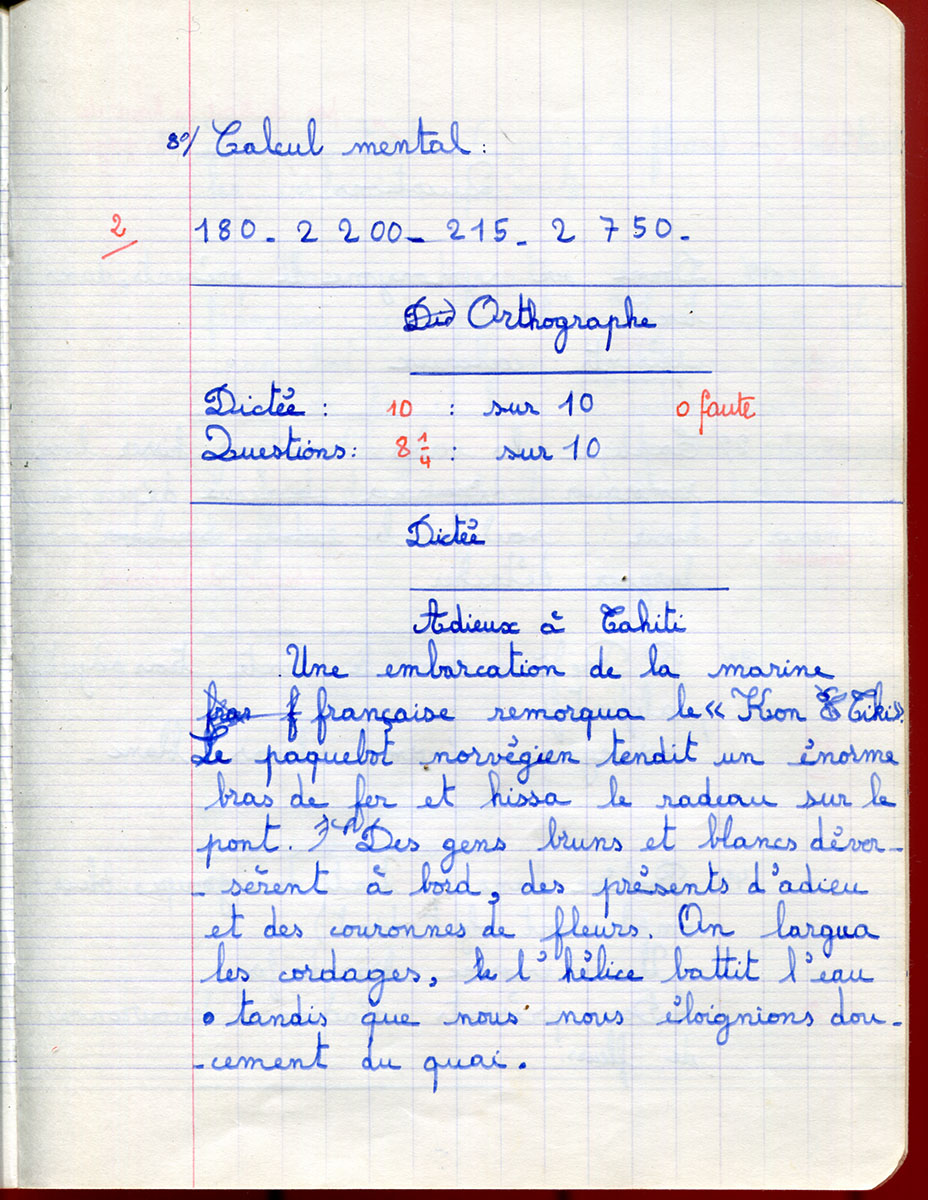 8°/ Calcul mental :
2 180 - 2 200 - 215 - 2 750 -
Orthographe
Dictée : 10 : sur 10 0 faute
Questions : 8 1/4 : sur 10
Dictée
Adieux à Tahiti
Une embarcation de la marine
française remorqua le « Kon Tiki ».
Le paquebot norvégien tendit un énorme
bras de fer et hissa le radeau sur le
pont. Des gens bruns et blancs déver-
-sèrent à bord, des présents d'adieu
et des couronnes de fleurs. On largua
les cordages, l'hélice battit l'eau
tandis que nous nous éloignions dou-
-cement du quai.